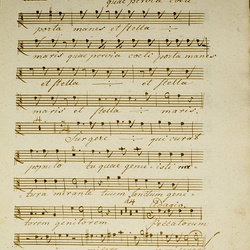 quae pervia coeli
porta manes et stella
maris quae pervia coeli porta manes
et stella et stella
maris et stella maris.
Surgere qui curat
populo tu quae genu
tura mirante tuum sanctum geni
torem genitorem peccatorum